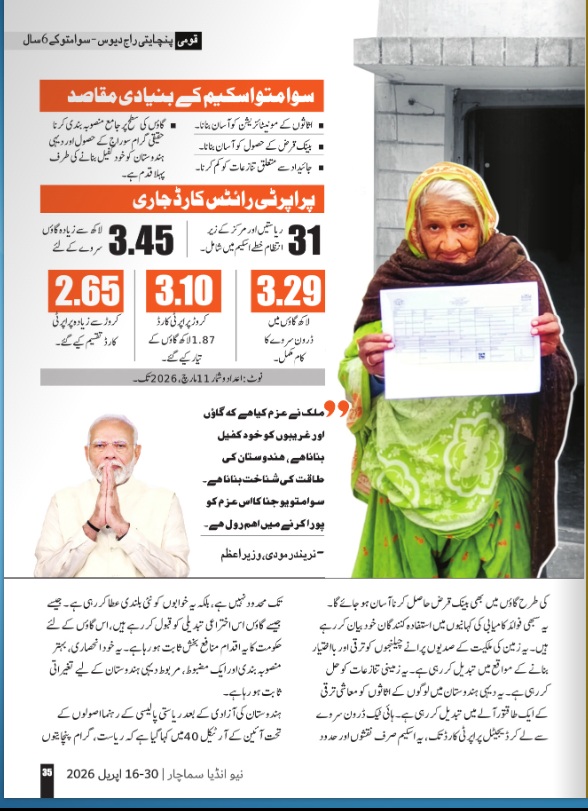 قومی پنچایتی راج دیوس-سوامتو کے 6 سال
سوامتو اسکیم کے بنیادی مقاصد
اثاثوں کے مونیٹائزیشن کو آسان بنانا۔
بینک قرض کے حصول کو آسان بنانا۔
جائیداد سے متعلق تنازعات کو کم کرنا۔
گاؤں کی سطح پر جامع منصوبہ بندی کرنا
حقیقی گرام سوراج کے حصول اور دیہی
ہندوستان کو خود کفیل بنانے کی طرف
پہلا قدم ہے۔
پراپرٹی رائٹس کارڈ جاری
31
ریاستیں اور مرکز کے زیر
انتظام خطے اسکیم میں شامل۔
3.45
لاکھ سے زیادہ گاؤں
سروے کے لئے
3.29
لاکھ گاؤں میں
ڈرون سروے کا
کام مکمل۔
3.10
کروڑ پراپرٹی کارڈ
1.87 لاکھ گاؤں کے
تیار کیے گئے۔
2.65
کروڑ سے زیادہ پراپرٹی
کارڈ تقسیم کیے گئے۔
نوٹ: اعداد و شمار 11 مارچ، 2026 تک۔
”ملک نے عزم کیا ہے کہ گاؤں
اور غریبوں کو خود کفیل
بنانا ہے، ہندوستان کی
طاقت کی شناخت بنانا ہے۔
سوامتو یوجنا کا اس عزم کو
پورا کرنے میں اہم رول ہے۔
–نریندر مودی، وزیر اعظم
کی طرح گاؤں میں بھی بینک قرض حاصل کرنا آسان ہو جائے گا۔
یہ سبھی فوائد کامیابی کی کہانیوں میں استفادہ کنندگان خود بیان کر رہے
ہیں۔ یہ زمین کی ملکیت کے صدیوں پرانے چیلنجوں کو ترقی اور بااختیار
بنانے کے مواقع میں تبدیل کر رہی ہے۔ یہ زمینی تنازعات کو حل
کر رہی ہے۔ یہ دیہی ہندوستان میں لوگوں کے اثاثوں کو معاشی ترقی
کے ایک طاقتور آلے میں تبدیل کر رہی ہے۔ ہائی ٹیک ڈرون سروے
سے لے کر ڈیجیٹل پراپرٹی کارڈ تک، یہ اسکیم صرف نقشوں اور حدود
تک محدود نہیں ہے، بلکہ یہ خوابوں کو نئی بلندی عطا کر رہی ہے۔ جیسے
جیسے گاؤں اس اختراعی تبدیلی کو قبول کر رہے ہیں، اس گاؤں کے لئے
حکومت کا یہ اقدام منافع بخش ثابت ہو رہا ہے۔ یہ خود انحصاری، بہتر
منصوبہ بندی اور ایک مضبوط، مربوط دیہی ہندوستان کے لیے تغیراتی
ثابت ہو رہا ہے۔
ہندوستان کی آزادی کے بعد ریاستی پالیسی کے رہنما اصولوں کے
تحت آئین کے آرٹیکل 40 میں کہا گیا ہے کہ ریاست، گرام پنچایتوں
نیو انڈیا سماچار | 16-30 اپریل 2026
35